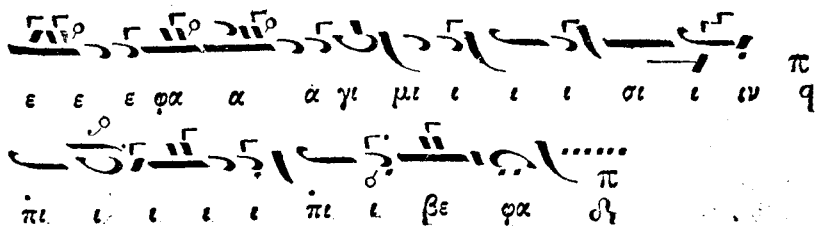 ε ε ε φα α ἀ γι μι ι ι ι σι ι ιν π q
πι ι ι ι ι πι ι βε φα π